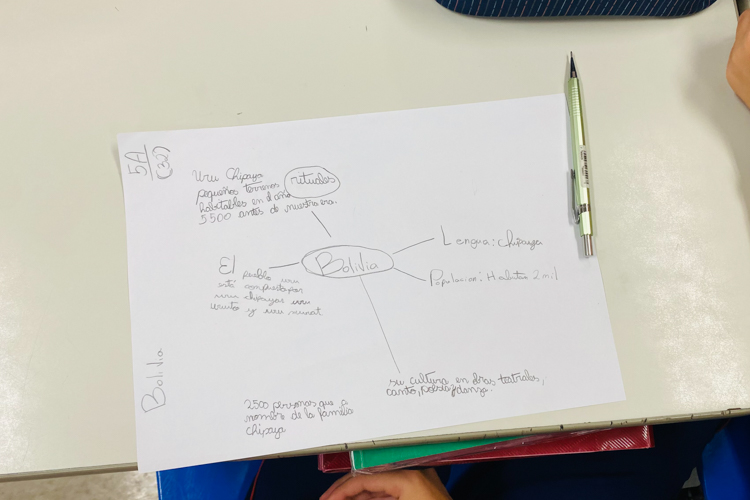 5A
(32)
Uru Chipaya
pequeños terrenos
habitables en el año
5500 antes de nuestra era.
rituales
Bolivia
Lengua: chipaya
Populacion: Habitan 2 mil
El pueblo uru
está compuesto por
uru chipayas uru
y uru
su cultura en obras teatrales,
canto, poesia y danza.
2500 personas que a
nombre de la familia
chipaya
Bolivia